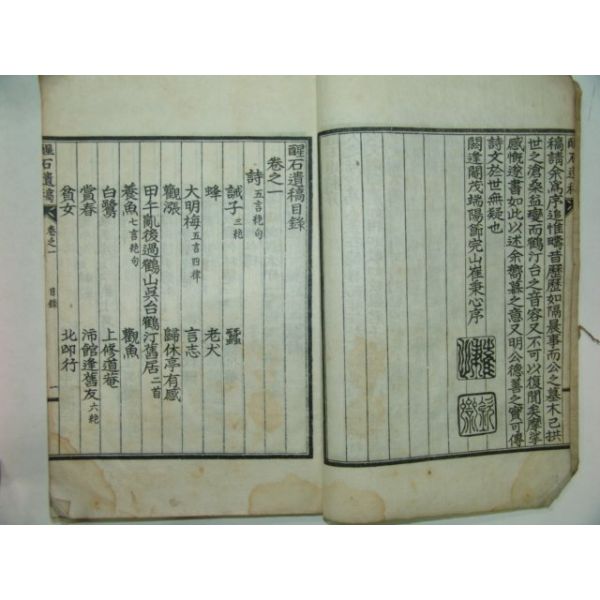 醒石遺稿
稿請余爲序追惟疇昔歷歷如隔晨事而公之墓木已拱
世之滄桑益變而鶴汀台之音容又不可以復聞矣摩挲
感慨遂書如此以述余嚮慕之意又明公德善之實可傳
詩文於世無疑也
閼逢閹茂端陽節完山崔秉心序
醒石遺稿目錄
卷之一
詩 五言絶句
誡子 三絶
蠶
蜂
老犬
大明梅 五言四律
言志
觀漲
歸休亭有感
甲午亂後過鶴山吳台鶴汀舊居 二首
養魚 七言絶句
觀魚
白鷺
上修道菴
賞春
沛館逢舊友 六絶
貧女
北邙行
醒石遺稿
卷之一
目錄
一